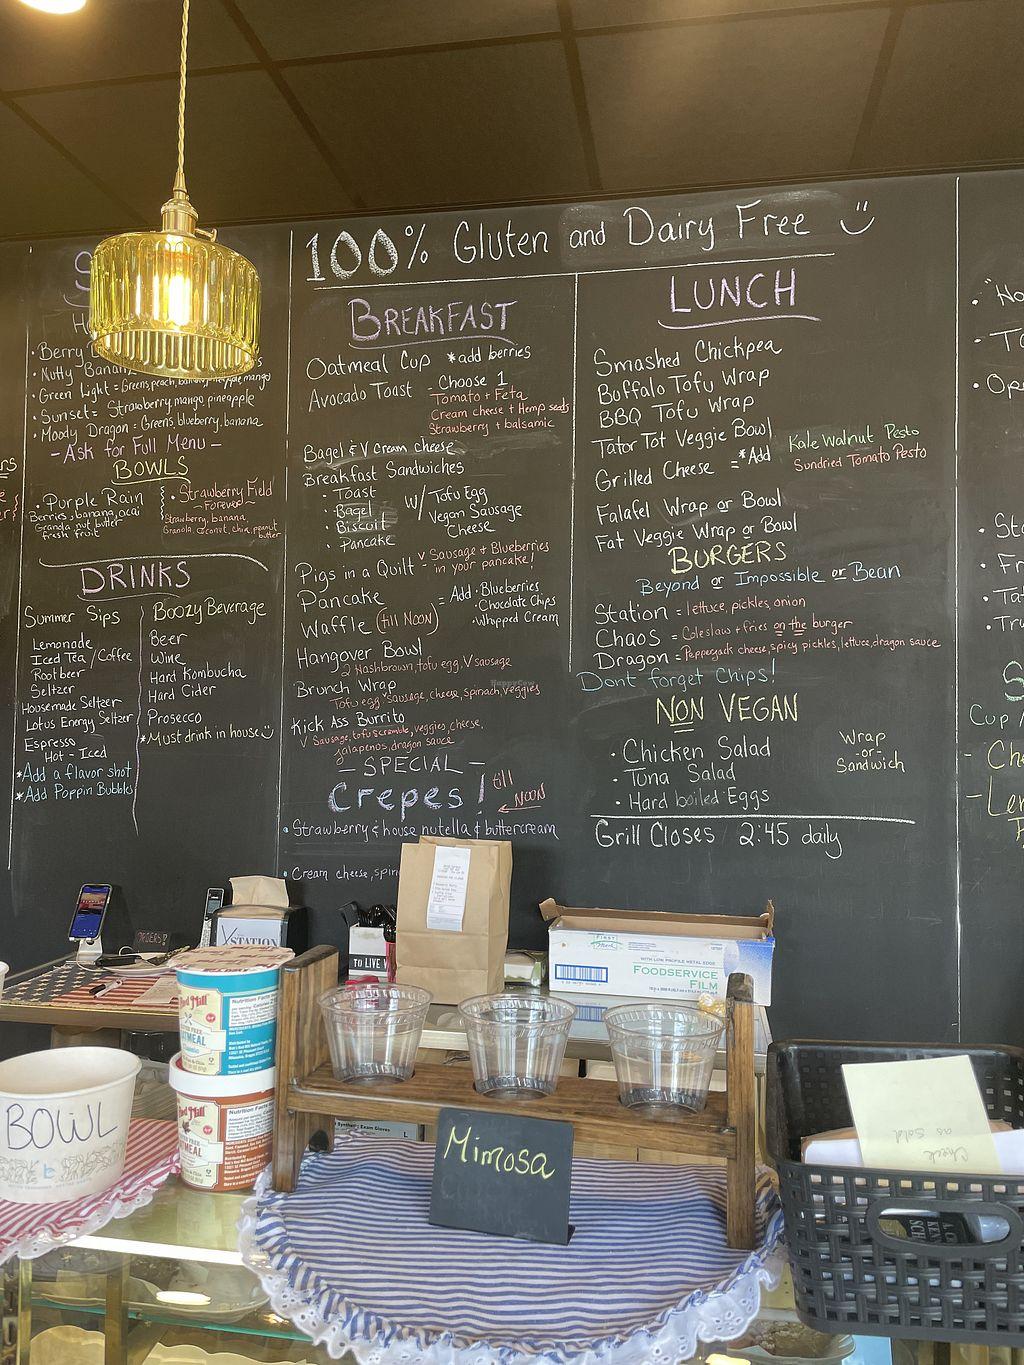 100% Gluten and Dairy Free
S
· Berry
· Nutty Banana
· Green Light = Greens, peach, banana, pineapple, mango
· Sunset = Strawberry, mango, pineapple
· Moody Dragon = Greens, blueberry, banana
- Ask for Full Menu -
BOWLS
· Purple Rain
Berries, banana, acai
Granola nut butter
fresh fruit
· Strawberry Field
- Forever -
Strawberry, banana,
Granola, coconut, chia, peanut
butter
DRINKS
Summer Sips
Lemonade
Iced Tea / Coffee
Rootbeer
Seltzer
Housemade Seltzer
Lotus Energy Seltzer
Espresso
Hot - Iced
*Add a flavor shot
*Add Poppin Bubbles
Boozy Beverage
Beer
Wine
Hard Kombucha
Hard Cider
Prosecco
*Must drink in house
BREAKFAST
Oatmeal Cup *add berries
Avocado Toast - Choose 1
Tomato + Feta
Cream cheese + Hemp seeds
Strawberry + balsamic
Bagel & V Cream cheese
Breakfast Sandwiches
· Toast
· Bagel
· Biscuit
· Pancake
w/ Tofu Egg
Vegan Sausage
Cheese
Pigs in a Quilt - V Sausage + Blueberries
in your pancake!
Pancake
Waffle (till NOON)
= Add · Blueberries
· Chocolate Chips
· Whipped Cream
Hangover Bowl
2 Hashbrown, tofu egg, V sausage
Brunch Wrap
Tofu egg, sausage, cheese, spinach, veggies
Kick Ass Burrito
V Sausage, tofu scramble, veggies, cheese,
jalapenos, dragon sauce
- SPECIAL -
Crepes! till NOON
· Strawberry & house nutella & buttercream
· Cream cheese, spin
LUNCH
Smashed Chickpea
Buffalo Tofu Wrap
BBQ Tofu Wrap
Tator Tot Veggie Bowl
Grilled Cheese = *Add Kale Walnut Pesto
Sundried Tomato Pesto
Falafel Wrap or Bowl
Fat Veggie Wrap or Bowl
BURGERS
Beyond or Impossible or Bean
Station = lettuce, pickles, onion
Chaos = Coleslaw + fries on the burger
Dragon = Pepperjack cheese, spicy pickles, lettuce, dragon sauce
Dont forget Chips!
NON VEGAN
· Chicken Salad
· Tuna Salad
· Hard boiled Eggs
Wrap
- or -
Sandwich
Grill Closes 2:45 daily
STATION
ORDERS!
TO LIVE
FIRST
WITH LOW PROFILE METAL EDGE
FOODSERVICE
FILM
Nutrition Facts
Nutrition Facts
Synthetic Exam Gloves L
BOWL
Mimosa
Check
as sold